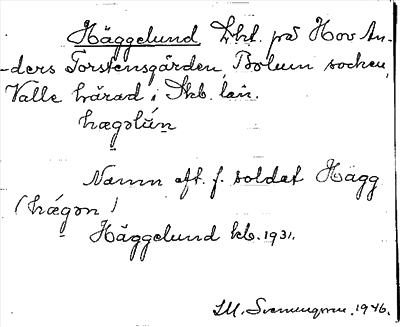 Häggelund Lht. på Hov An-
ders Torstensgården, Bolum socken,
Valle härad i Skb. län.
hægəlún
Namn eft. f. soldat Hägg
(hǽgən)
Häggelund kb. 1931.
1946.